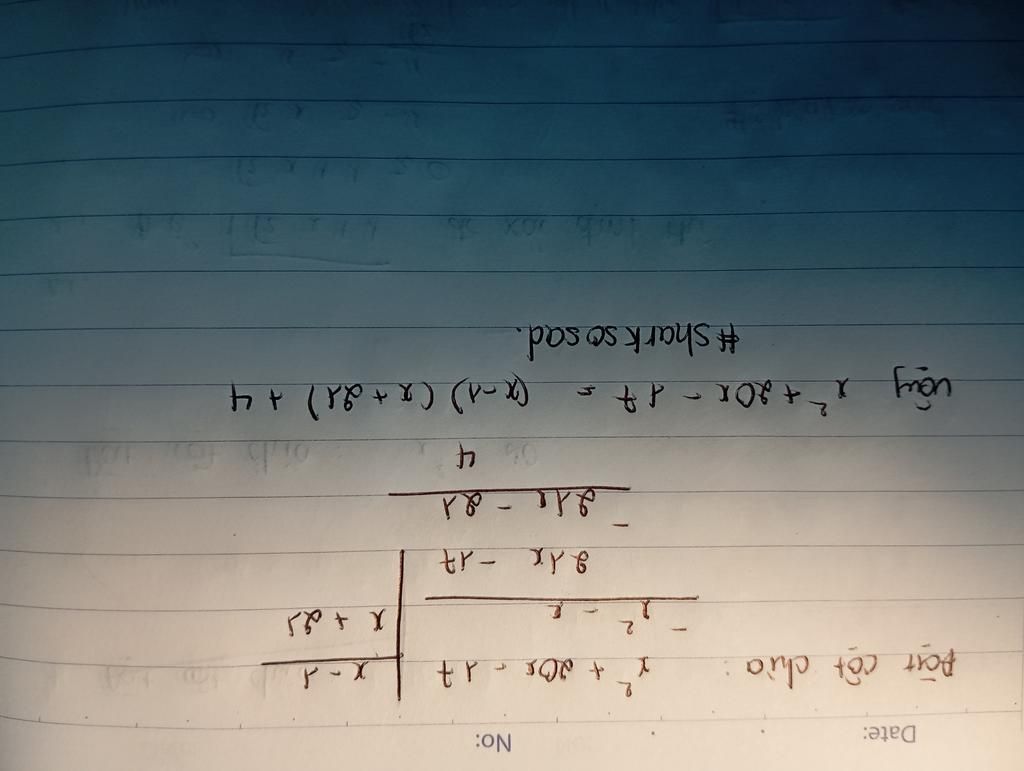 Date: No:
Đặt cột chia : x² + 20x - 17 | x - 1
- x² - x | x + 21
21x - 17
- 21x - 21
4
Vậy x² + 20x - 17 = (x-1) (x + 21) + 4
#sharksosad.